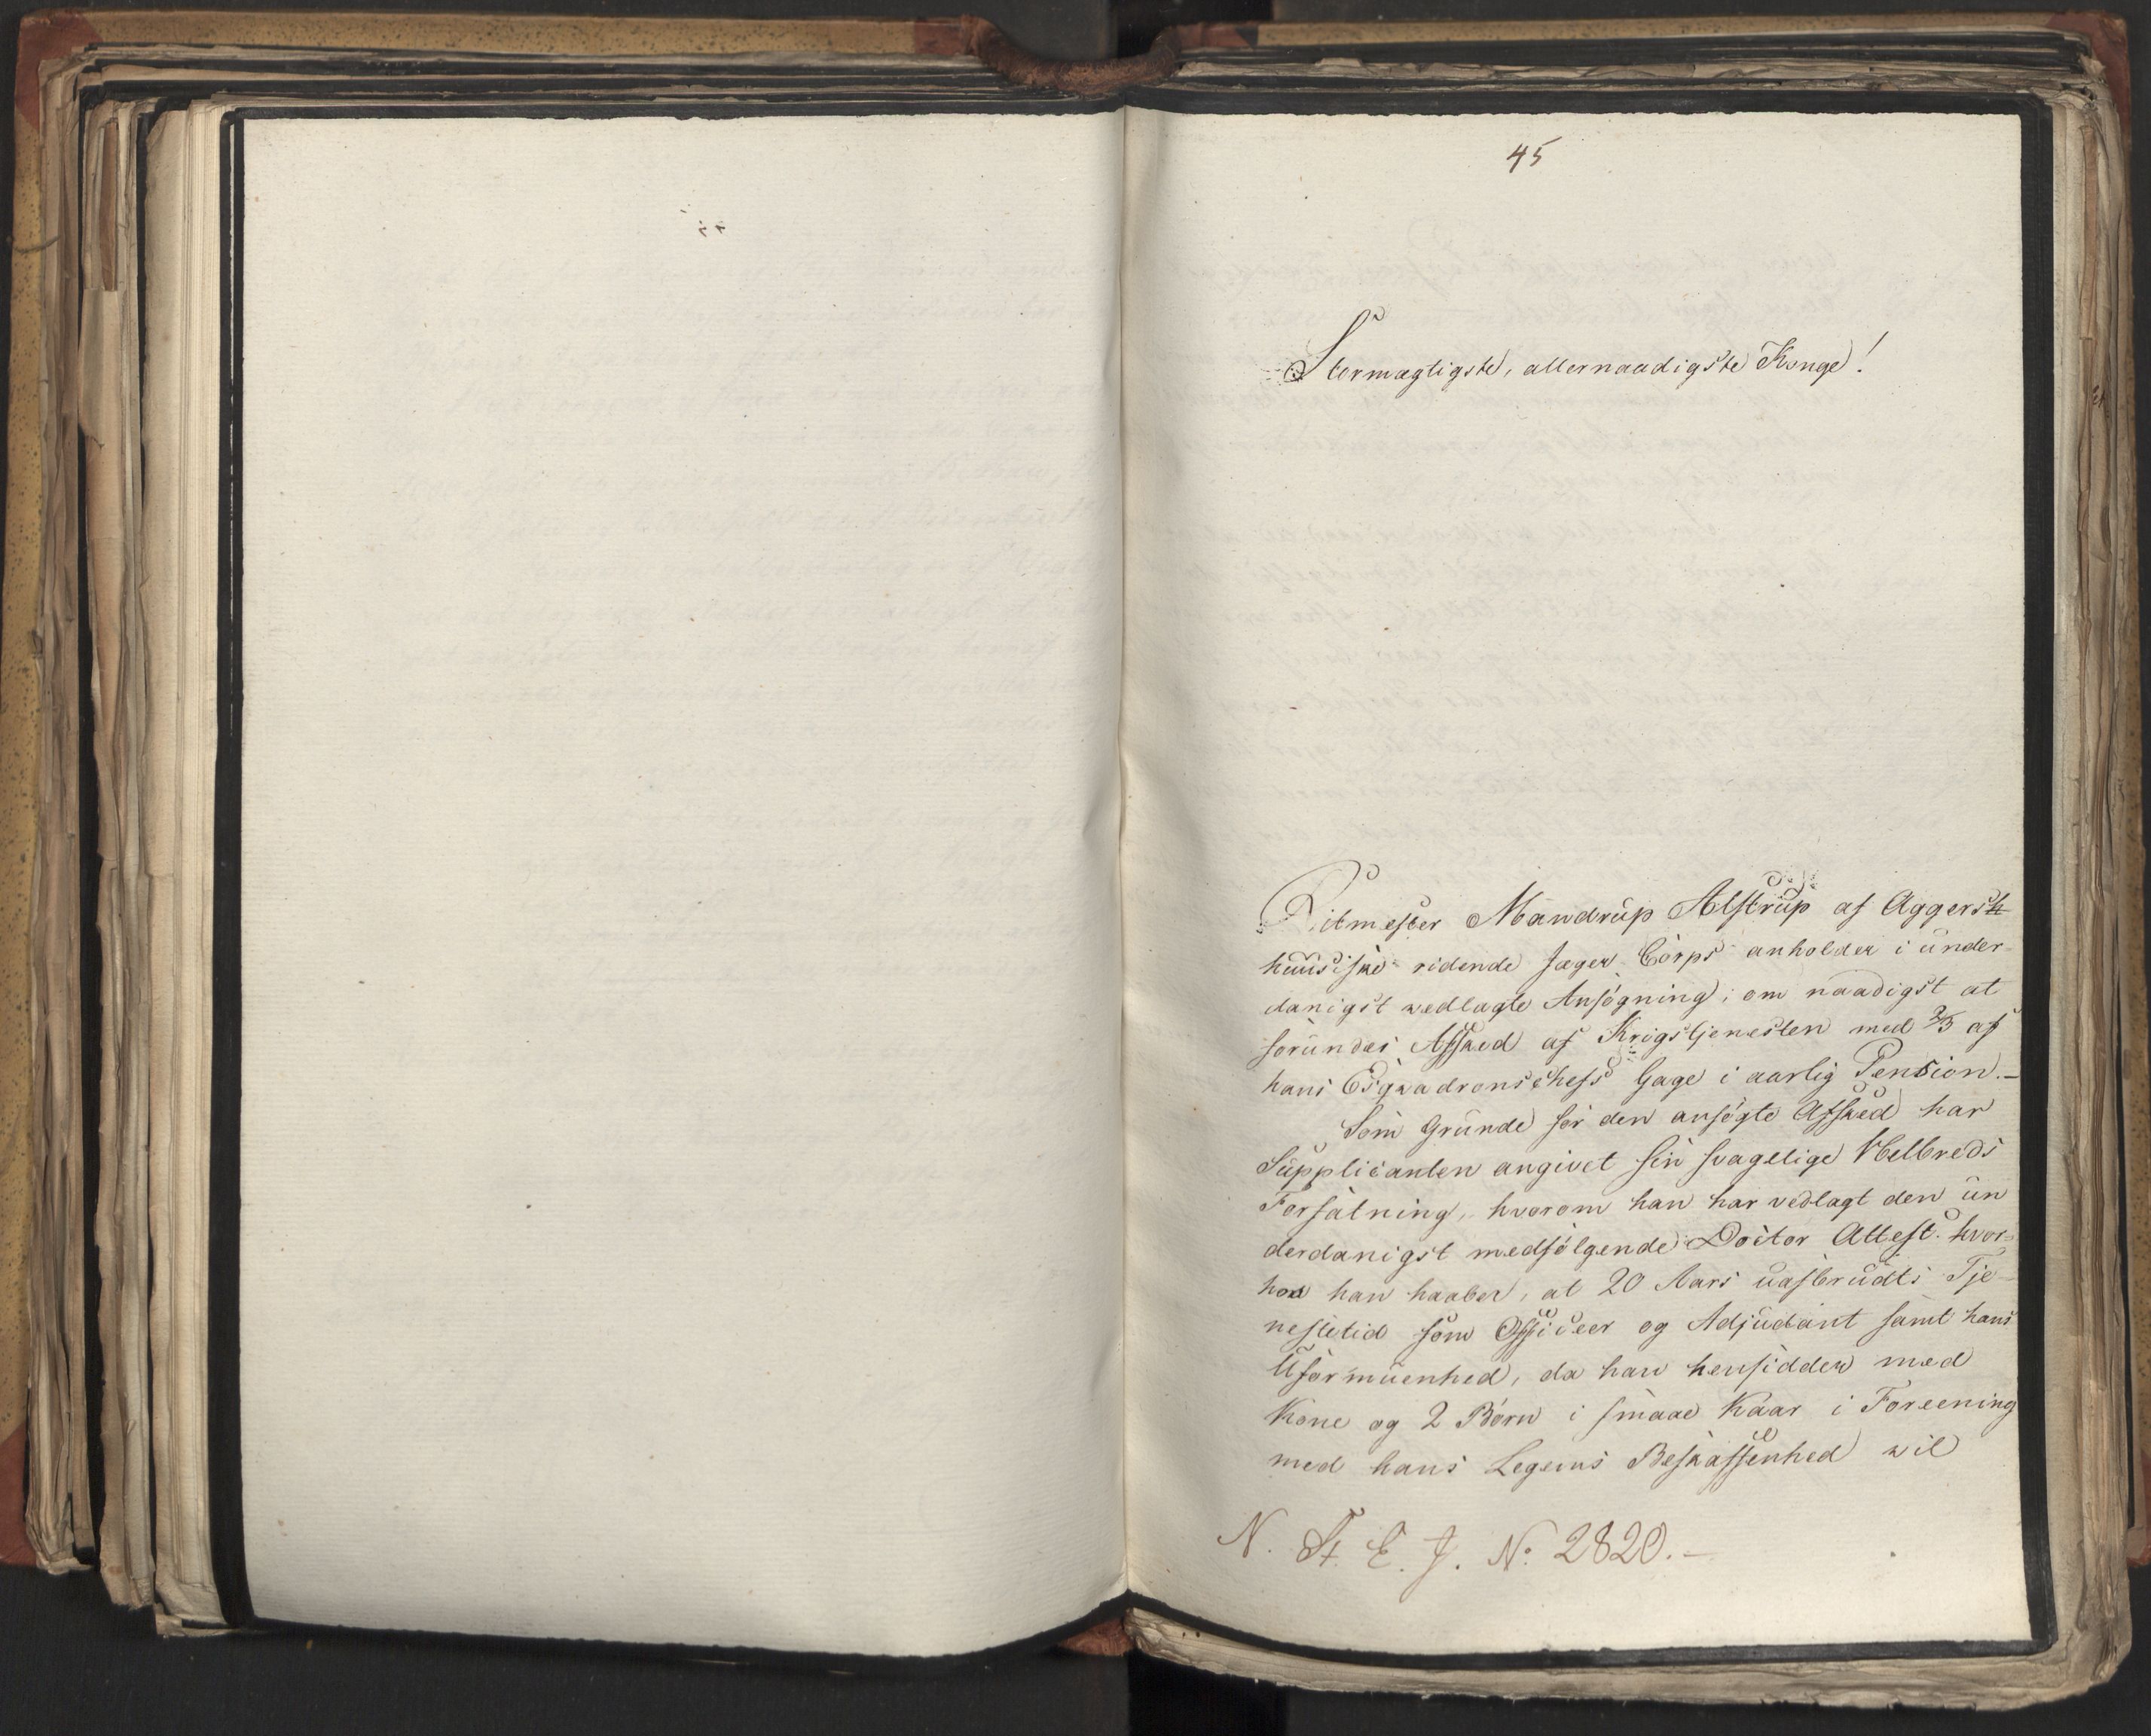 45
Stormægtigste, allernaadigste Konge!
Ritmester Mandrup Alstrup af Aggers
huusiske ridende Jæger Corps anholder i under-
danigst vedlagte Ansøgning; om naadigst at
forundes Afskeed af Krigstjenesten med 2/3 af
hans Esqvadronschefs Gage i aarlig Pension.-
Som Grunde for den ansøgte Afskeed har
Supplicanten angivet sin svagelige Helbreds
Forfatning, hvorom han har vedlagt den un
derdanigst medfølgende Doctor Attest. hvor-
hos han haaber, at 20 Aars uafbrudts Tje-
nestetid som Officeer og Adjudant samt hans
Uformuenhed, da han hensidder med
Kone og 2 Børn i smaae Kaar i Foreening
med hans Legems Beskaffenhed vil
N. St. E. J. No. 2820.-